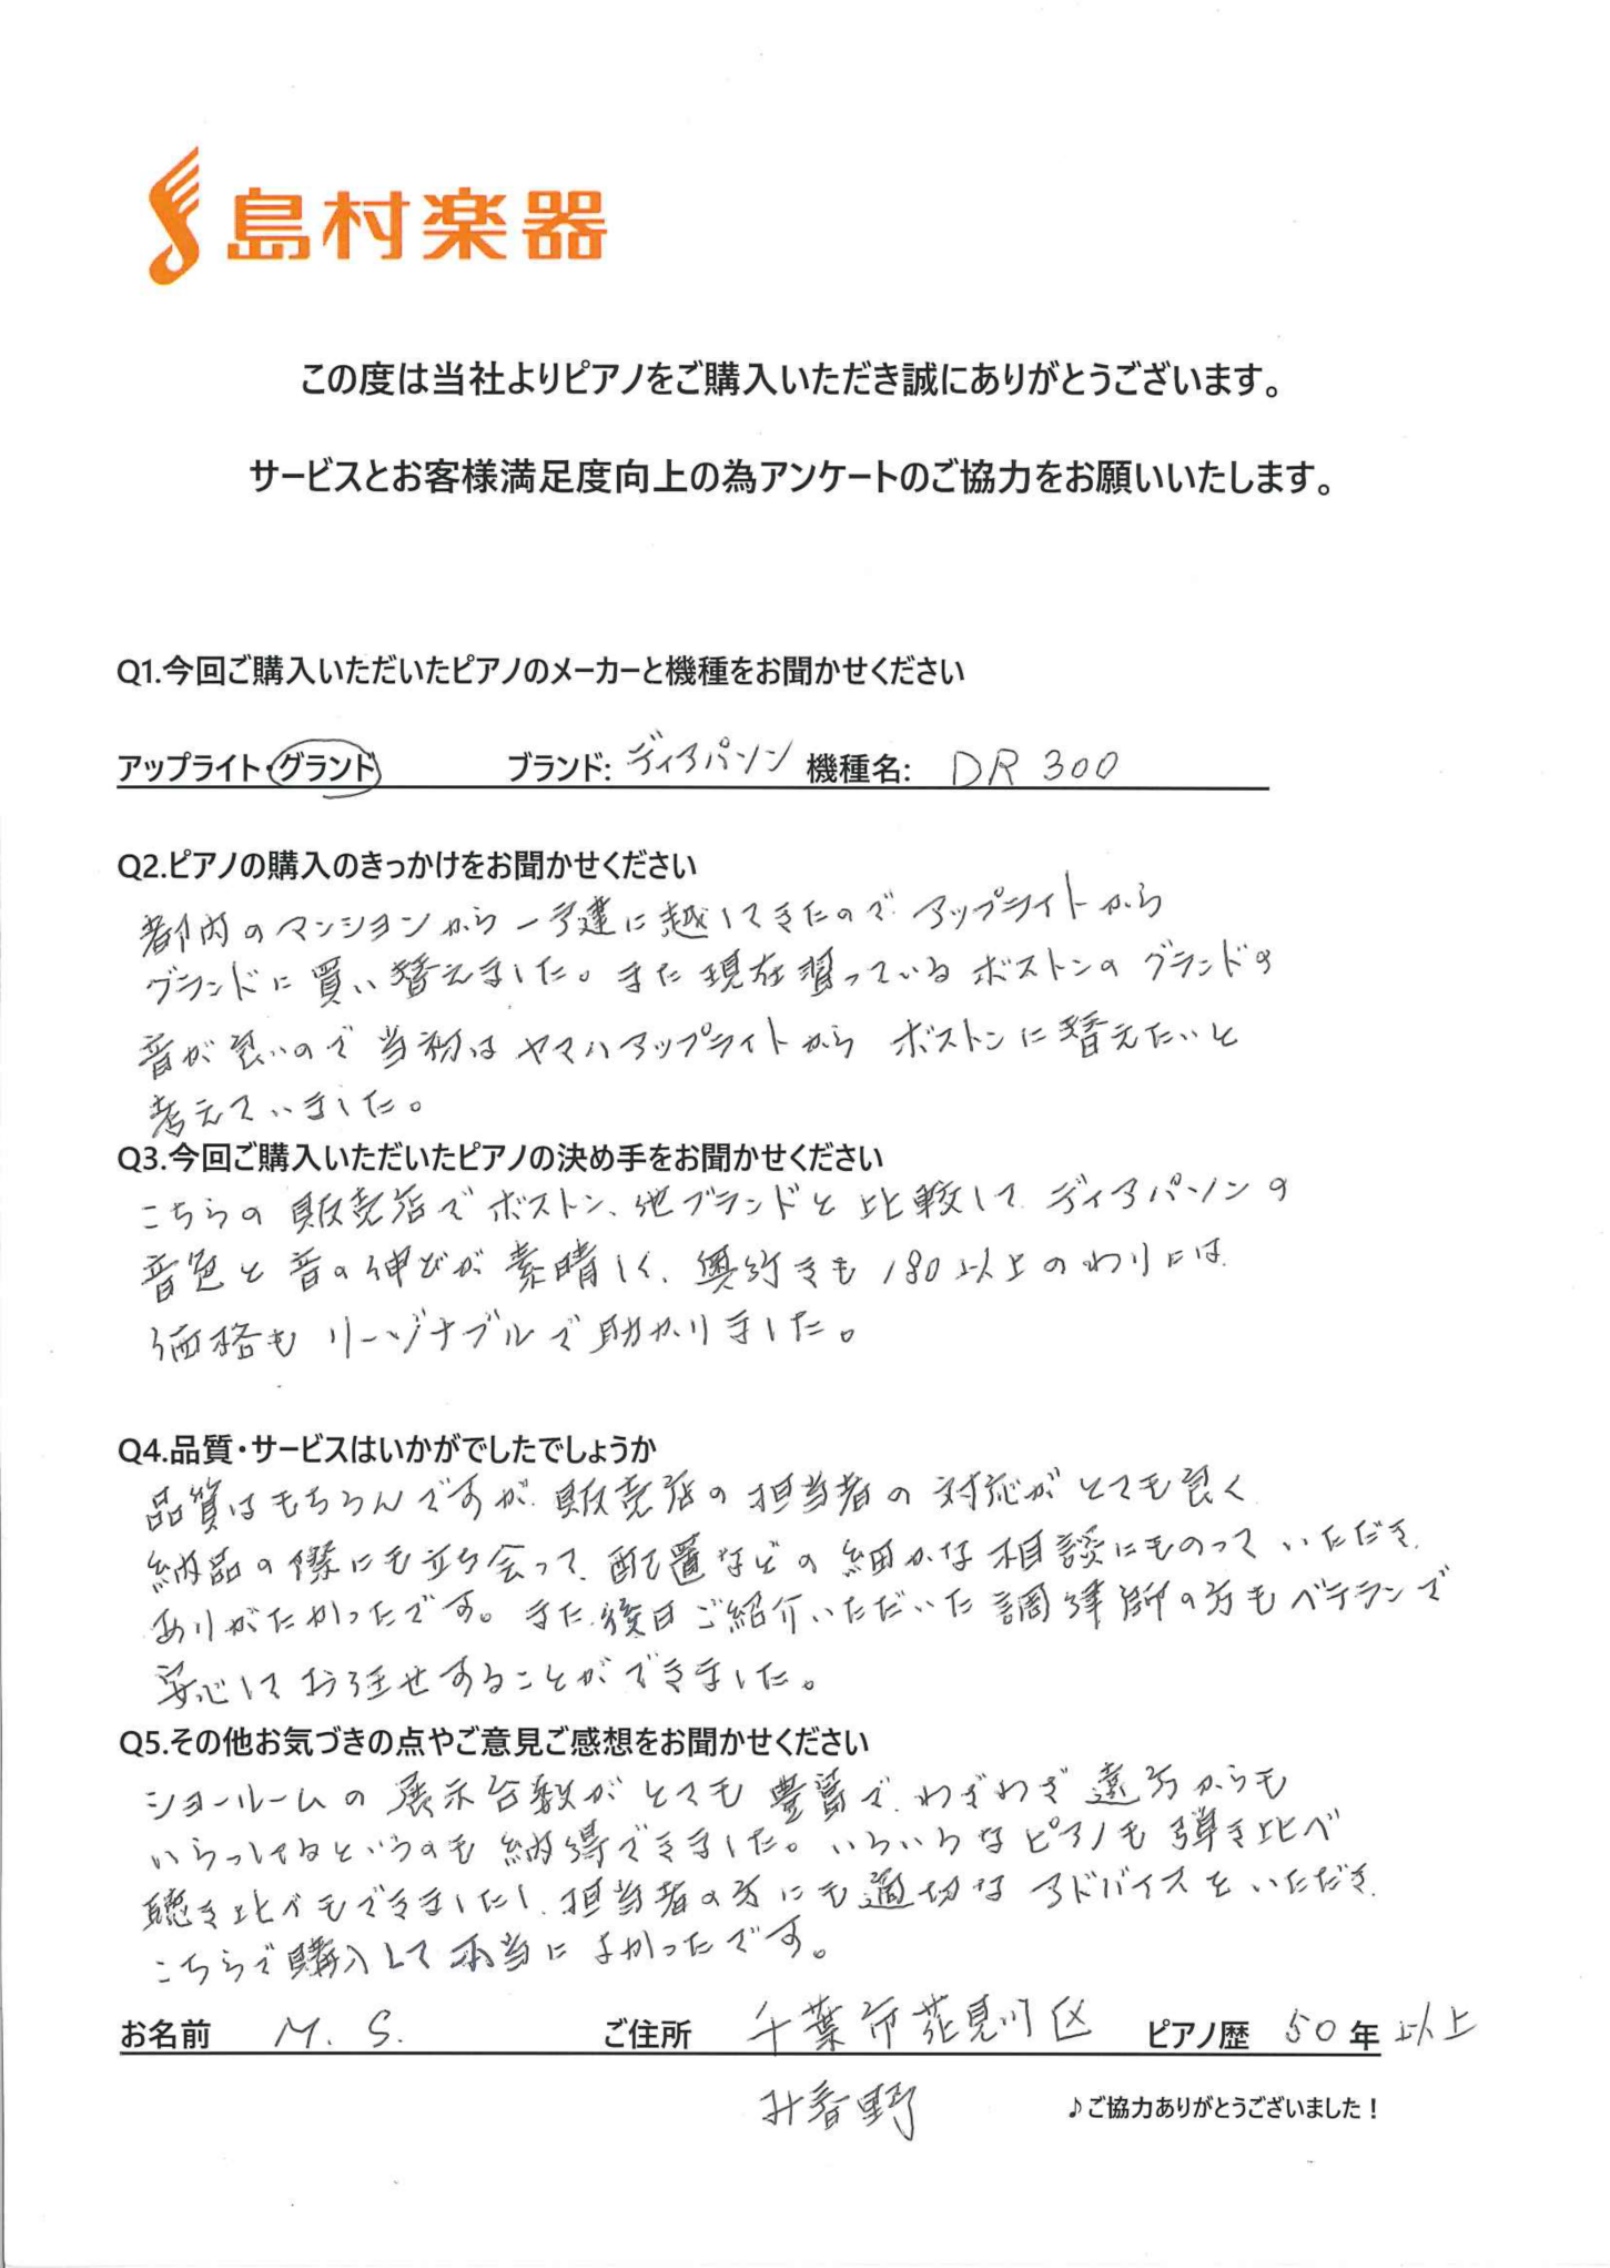 島村楽器
この度は当社よりピアノをご購入いただき誠にありがとうございます。
サービスとお客様満足度向上の為アンケートのご協力をお願いいたします。
Q1.今回ご購入いただいたピアノのメーカーと機種をお聞かせください
アップライト・グランド ブランド: ディアパソン 機種名: DR 300
Q2.ピアノの購入のきっかけをお聞かせください
都内のマンションから一戸建に越してきたのでアップライトから
グランドに買い替えました。また現在習っているボストンのグランドの
音が良いので当初はヤマハアップライトからボストンに替えたいと
考えていました。
Q3.今回ご購入いただいたピアノの決め手をお聞かせください
こちらの販売店でボストン、他ブランドと比較して、ディアパソンの
音色と音の伸びが素晴しく、奥行きも180以上のわりには
価格もリーゾナブルで助かりました。
Q4.品質・サービスはいかがでしたでしょうか
品質はもちろんですが、販売店の担当者の対応がとても良く
納品の際にも立ち会って、配置などの細かな相談にものっていただき、
ありがたかったです。また、後日ご紹介いただいた調律師の方もベテランで
安心してお任せすることができました。
Q5.その他お気づきの点やご意見ご感想をお聞かせください
ショールームの展示台数がとても豊富で、わざわざ遠方からも
いらっしゃるというのも納得できました。いろいろなピアノも弾き比べ
聴き比べもできましたし、担当者の方にも適切なアドバイスをいただき、
こちらで購入して本当によかったです。
お名前 M. S. ご住所 千葉市花見川区 ピアノ歴 50 年 以上
み春野
♪ご協力ありがとうございました！